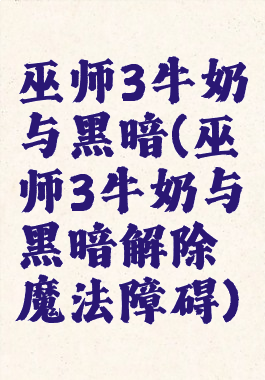 巫师3牛奶
与黑暗(巫
师3牛奶与
黑暗解除
魔法障碍)